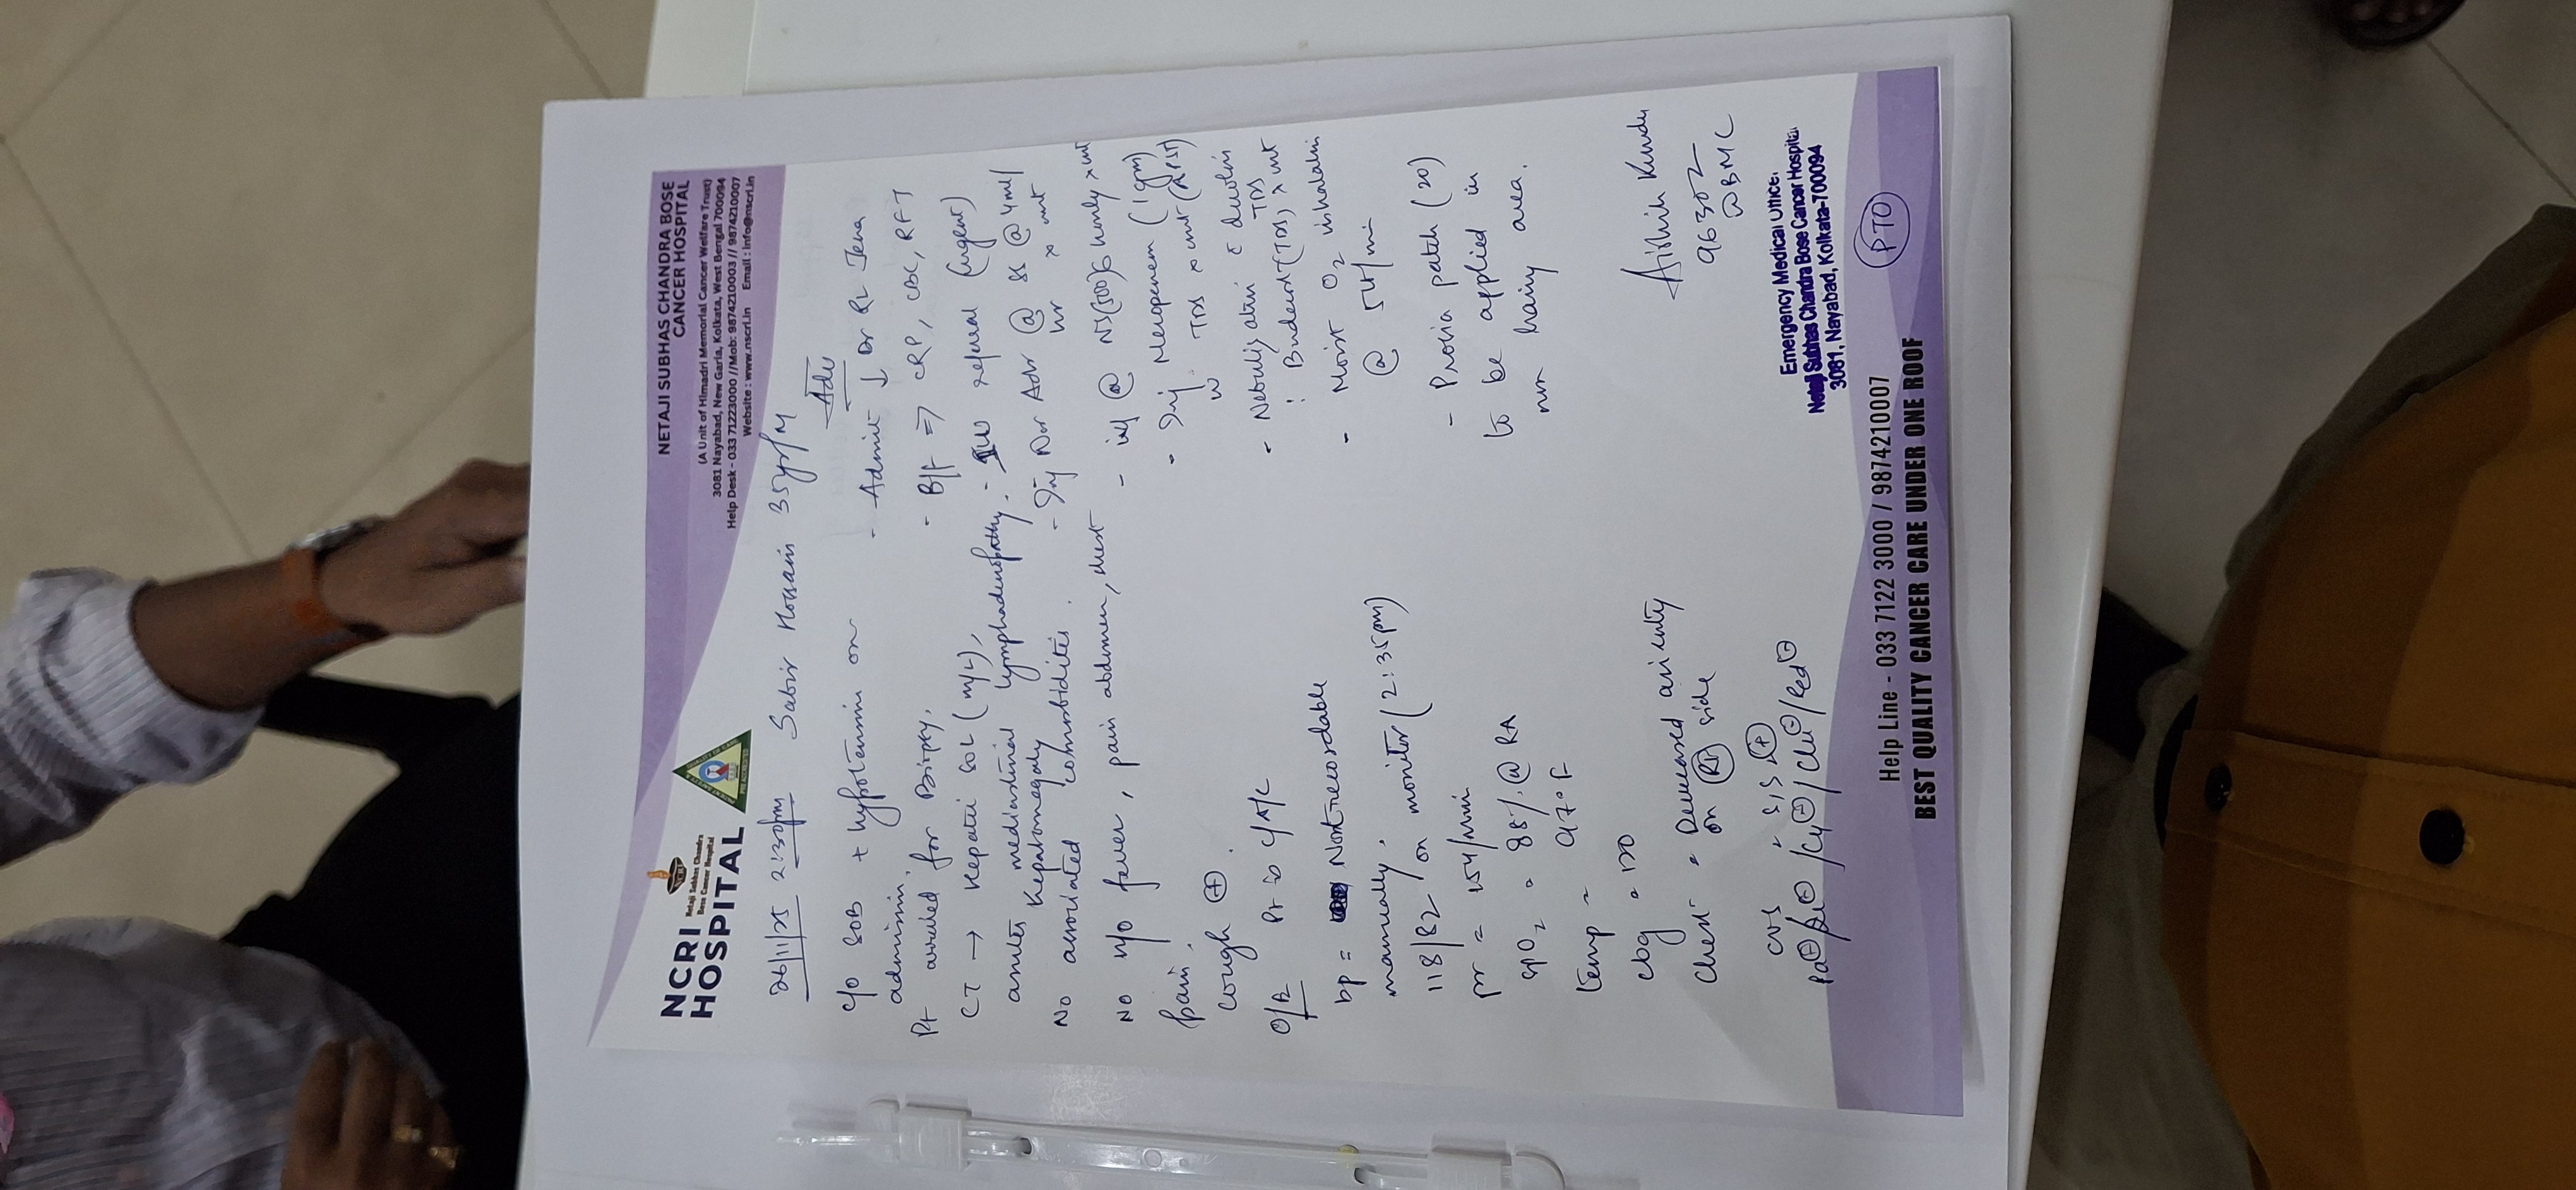 NCRI
HOSPITAL
Netaji Subhas Chandra
Bose Cancer Hospital
NETAJI SUBHAS CHANDRA BOSE
CANCER HOSPITAL
(A Unit of Himadri Memorial Cancer Welfare Trust)
3081 Nayabad, New Garia, Kolkata, West Bengal 700094
Help Desk - 033 71223000 //Mob: 9874210003 // 9874210007
Website : www.nscri.in Email : info@nscri.in
26/11/25 2:30pm Sabir Hossain 35yr/M
c/o SOB + hypotension on
admission.
Pt arrived for Biopsy.
CT → Hepatic SOL (m/L),
ascites mediastinal lymphadenopathy.
Hepatomegaly
No associated comorbidities.
No h/o fever, pain abdomen, chest
pain.
cough ⊕.
O/E Pt is C/A/C
bp = Not recordable
manually.
118/82 on monitor (2:35pm)
pr = 154/min
spO2 = 88% @ RA
temp = 97°F
cbg = 120
chest = Decreased air entry
on (Rt) side
CVS = S1S2 ⊕
Adv
- Admit ↓ Dr RL Jena
- B/t ⇒ CRP, CBC, RFT
- ICU referral (urgent)
- Inj Nor Adr @ 8S @ 4ml/
hr x cont
- ivf @ NS(500) 6 hourly x cont
- Inj. Meropenem (1gm)
iv TDS x cont (APST)
- Nebulisation c duolin
TDS
: Budecort (TDS) x cont
- Moist O2 inhalation
@ 5lt/min
- Provia patch (20)
to be applied in
non hairy area.
Aishik Kundu
96302
WBMC
Emergency Medical Officer
Netaji Subhas Chandra Bose Cancer Hospital
3081, Nayabad, Kolkata-700094
PTO
Help Line - 033 7122 3000 / 9874210007
BEST QUALITY CANCER CARE UNDER ONE ROOF